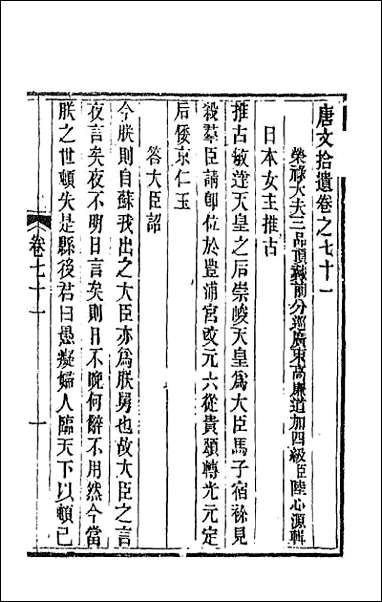 唐文拾遺卷之七十一
榮祿大夫三品頂戴前分巡廣東高廉道加四級臣陸心源輯
日本女主推古
推古敏達天皇之后崇峻天皇爲大臣馬子宿禰見
殺羣臣請卽位於豊浦宮改元六從貴頌轉光元定
后倭京仁玉
答大臣詔
今朕則自蘇我出之大臣亦爲朕舅也故大臣之言
夜言矣夜不明日言矣則日不晚何辭不用然今當
朕之世頓失是縣後君曰愚癡婦人臨天下以頓己
卷七十一
一